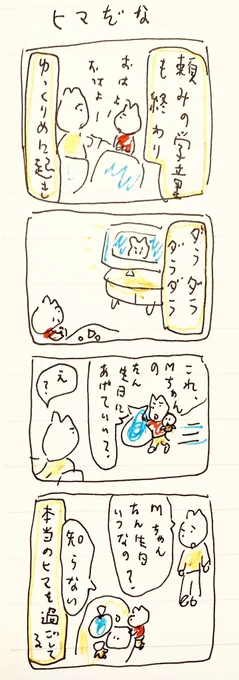 ヒマだな
頼みの学童
も終わり
おはよー
おはよ
ゆっくりめに起き
ダラダラ
ダラダラ
これ、
Mちゃん
の
たん生日に
あげていい？
え
？
Mちゃん
たん生日
いつなの？
知らない
本当のヒマを過ごして
る